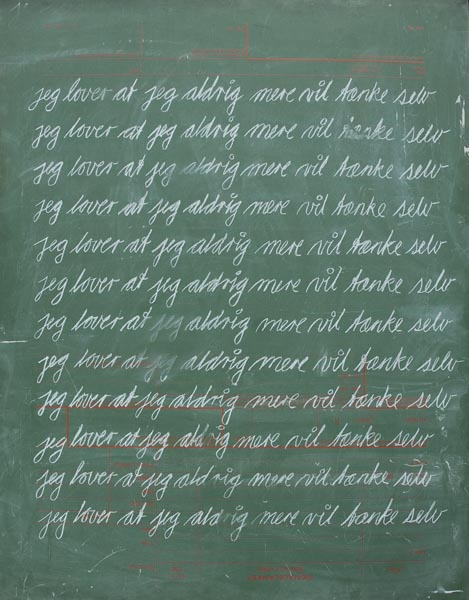 jeg lover at jeg aldrig mere vil tænke selv
jeg lover at jeg aldrig mere vil tænke selv
jeg lover at jeg aldrig mere vil tænke selv
jeg lover at jeg aldrig mere vil tænke selv
jeg lover at jeg aldrig mere vil tænke selv
jeg lover at jeg aldrig mere vil tænke selv
jeg lover at jeg aldrig mere vil tænke selv
jeg lover at jeg aldrig mere vil tænke selv
jeg lover at jeg aldrig mere vil tænke selv
jeg lover at jeg aldrig mere vil tænke selv
jeg lover at jeg aldrig mere vil tænke selv
jeg lover at jeg aldrig mere vil tænke selv